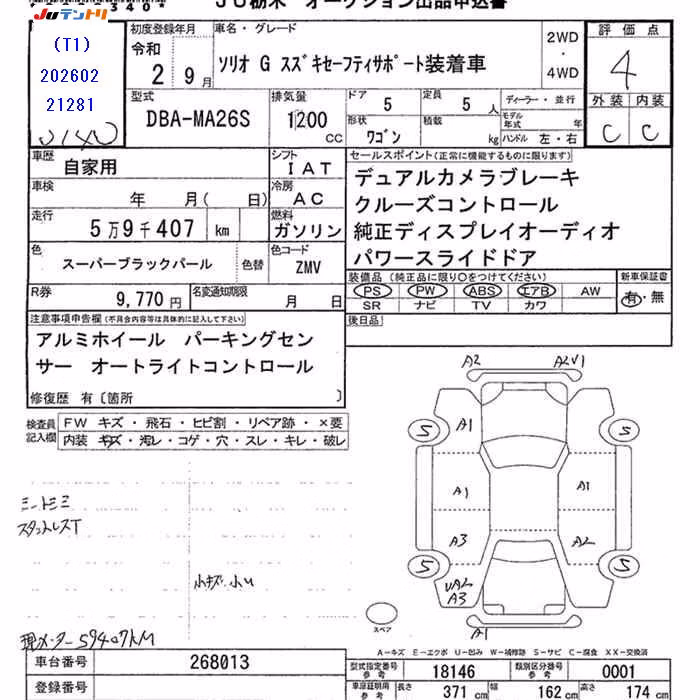 JU栃木 オークション出品申込書
JUテントリ
340
(T1)
202602
21281
初度登録年月
令和
2 9月
車名・グレード
ソリオ G スズキセーフティサポート装着車
2WD
・
4WD
評価点
4
外装 内装
C C
型式
DBA-MA26S
排気量
1200
CC
ドア 5
定員 5 人
形状 ワゴン
積載 kg
ディーラー・並行
モデル年式 年
ハンドル 左・右
車歴
自家用
シフト
IAT
車検
年 月( 日)
冷房
AC
走行
5万9千407 km
燃料
ガソリン
色
スーパーブラックパール
色替
色コード
ZMV
R券
9,770円
名変通知期限
月 日
セールスポイント(正常に機能するものに限ります)
デュアルカメラブレーキ
クルーズコントロール
純正ディスプレイオーディオ
パワースライドドア
装備品(純正品に限り○をつけてください)
PS PW ABS エアB AW
SR ナビ TV カワ
新車保証書
有・無
後日品
注意事項申告欄(不具合内容等は具体的に記入して下さい)
アルミホイール パーキングセン
サー オートライトコントロール
修復歴 有〔箇所 〕
検査員
記入欄
FW キズ・飛石・ヒビ割・リペア跡・×要
内装 キズ・汚レ・コゲ・穴・スレ・キレ・破レ
スタッドレスT
小キズ、小U
現メーター59407KM
A2 A2V1
S A1 S
A1 A1
A3 A2
S UA2 A3 S
A1
スペア
A-キズ E-エクボ U-凹み W-補修跡 S-サビ C-腐食 XX-交換済
車台番号
268013
登録番号
型式指定番号
参考
18146
類別区分番号
参考
0001
車庫証明用
参考
長さ 371 cm
幅 162 cm
高さ 174 cm